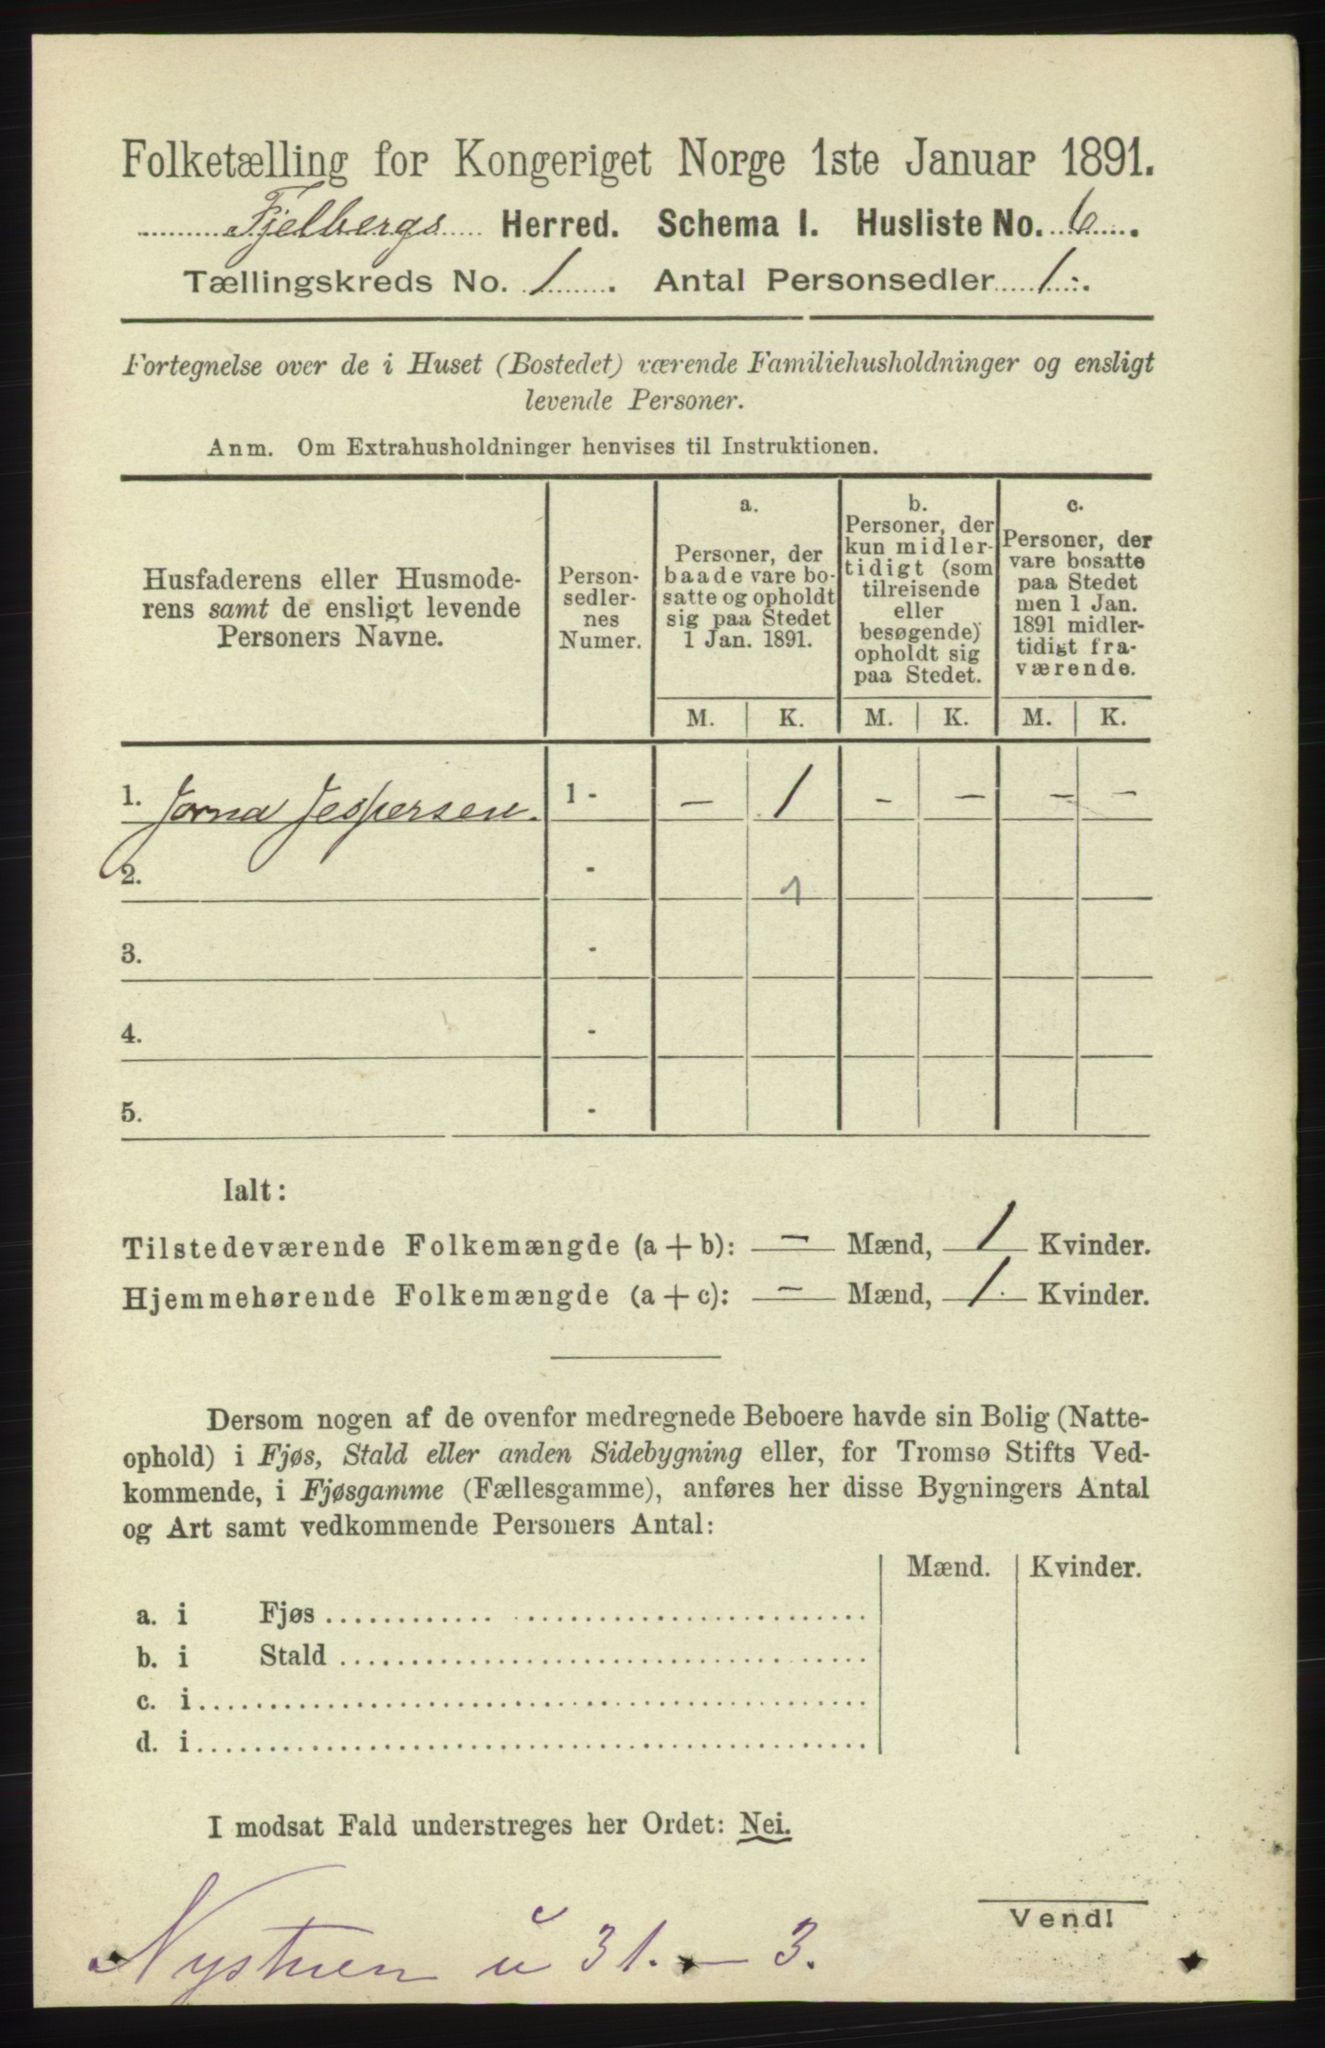 Folketælling for Kongeriget Norge 1ste Januar 1891.
Fjelbergs Herred. Schema I. Husliste No. 6.
Tællingskreds No. 1. Antal Personsedler 1.
Fortegnelse over de i Huset (Bostedet) værende Familiehusholdninger og ensligt
levende Personer.
Anm. Om Extrahusholdninger henvises til Instruktionen.
Husfaderens eller Husmode-
rens samt de ensligt levende
Personers Navne.
Person-
sedler-
nes
Numer.
a.
Personer, der
baade vare bo-
satte og opholdt
sig paa Stedet
1 Jan. 1891.
b.
Personer, der
kun midler-
tidigt (som
tilreisende
eller
besøgende)
opholdt sig
paa Stedet.
c.
Personer, der
vare bosatte
paa Stedet
men 1 Jan.
1891 midler-
tidigt fra-
værende.
M. K. M. K. M. K.
1. Jorna Jespersen. 1 - – 1 – – – –
2. - 1
3. -
4. -
5. -
Ialt:
Tilstedeværende Folkemængde (a + b): – Mænd, 1 Kvinder.
Hjemmehørende Folkemængde (a + c): – Mænd, 1. Kvinder.
Dersom nogen af de ovenfor medregnede Beboere havde sin Bolig (Natte-
ophold) i Fjøs, Stald eller anden Sidebygning eller, for Tromsø Stifts Ved-
kommende, i Fjøsgamme (Fællesgamme), anføres her disse Bygningers Antal
og Art samt vedkommende Personers Antal:
Mænd. Kvinder.
a. i Fjøs
b. i Stald
c. i
d. i
I modsat Fald understreges her Ordet: Nei.
Vend!
Nystuen u 31. – 3.